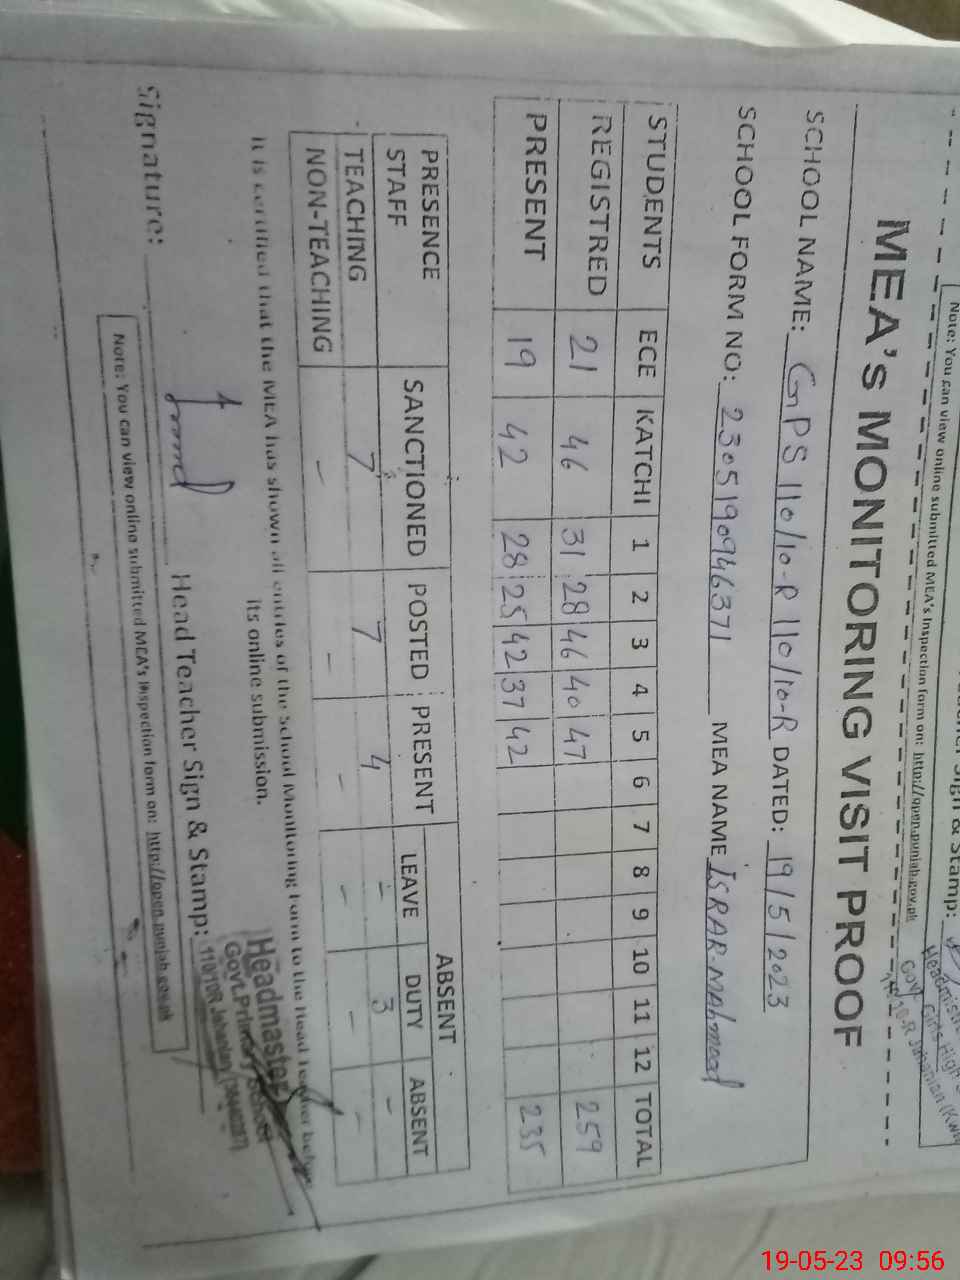 Sign & Stamp:
Note: You can view online submitted MEA's Inspection form on: http://open.punjab.gov.pk
Govt. Girls High
MEA'S MONITORING VISIT PROOF
SCHOOL NAME: GPS 110/10-R 110/10-R DATED: 19/5/2023
SCHOOL FORM NO: 230519094637 1 MEA NAME ISRAR MAHMOOD
STUDENTS ECE KATCHI 1 2 3 4 5 6 7 8 9 10 11 12 TOTAL
REGISTRED 21 46 31 28 46 40 47 259
PRESENT 19 42 28 25 42 37 42 235
PRESENCE STAFF SANCTIONED POSTED PRESENT ABSENT
LEAVE DUTY ABSENT
TEACHING 7 7 4 - 3 -
NON-TEACHING - - - - - -
It is certified that the MEA has shown all entries of the School Monitoring form to the Head Teacher before
its online submission.
Headmaster
Govt. Primary School
110/10R Jahanian (
Signature: Head Teacher Sign & Stamp:
Note: You can view online submitted MEA's Inspection form on: http://open.punjab.gov.pk
19-05-23 09:56